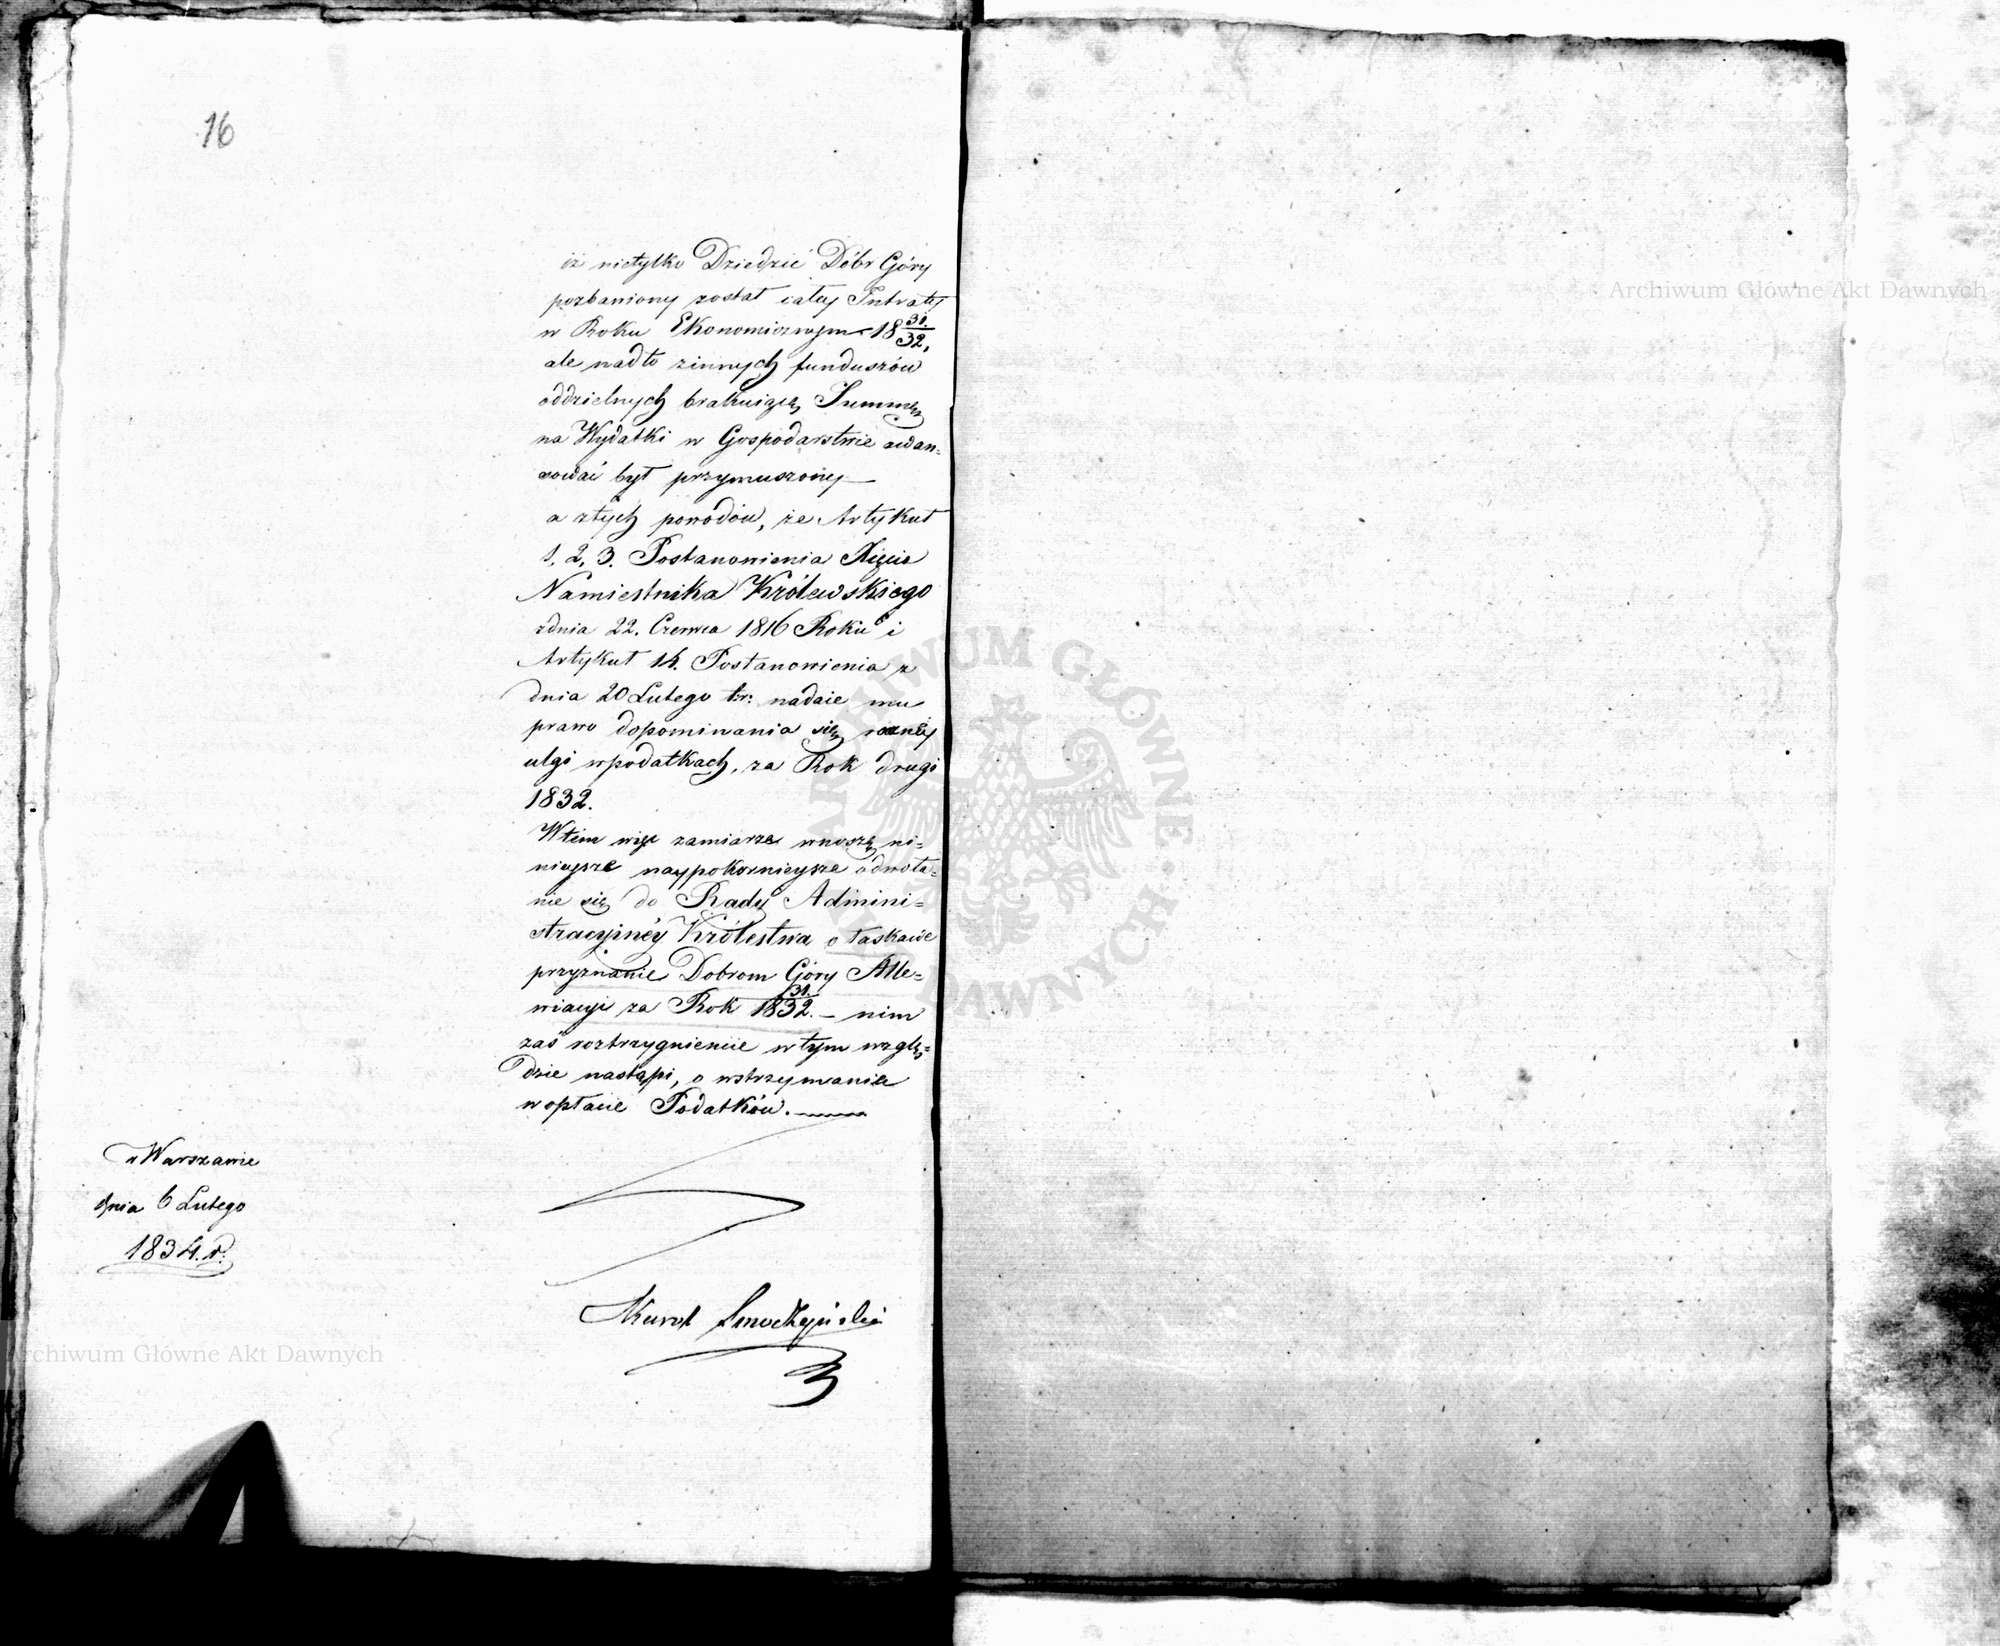 16
iż nietylko Dziedzic Dóbr Góry
pozbawiony został całey Intraty
w Roku Ekonomicznym 18 31/32,
ale nadto zinnych funduszów
oddzielnych brakuiącą Summę
na Wydatki w Gospodarstwie awan=
sować był przymuszony —
a ztych powodów, że Artykuł
1, 2, 3. Postanowienia Xięcia
Namiestnika Królewskiego
zdnia 22. Czerwca 1816 Roku i
Artykuł 14. Postanowienia z
dnia 20 Lutego t.r: nadaie mu
prawo dopominania się
ulgi wpodatkach, za Rok drugi
1832.
Wtém więc zamiarze wnoszę ni=
nieysze naypokornieysze odwoła=
nie się do Rady Admini=
stracyinéy Królestwa o łaskawe
przyznanie Dobrom Góry Alle=
wiacyi za Rok 18 31/32. — nim
zaś roztrzygnienie wtym wzglę=
dzie nastąpi, o wstrzymanie
wopłacie Podatków. —
w Warszawie
dnia 6 Lutego
1834. r.
Karol
Archiwum Główne Akt Dawnych
Archiwum Główne Akt Dawnych
ARCHIWUM GŁÓWNE AKT DAWNYCH